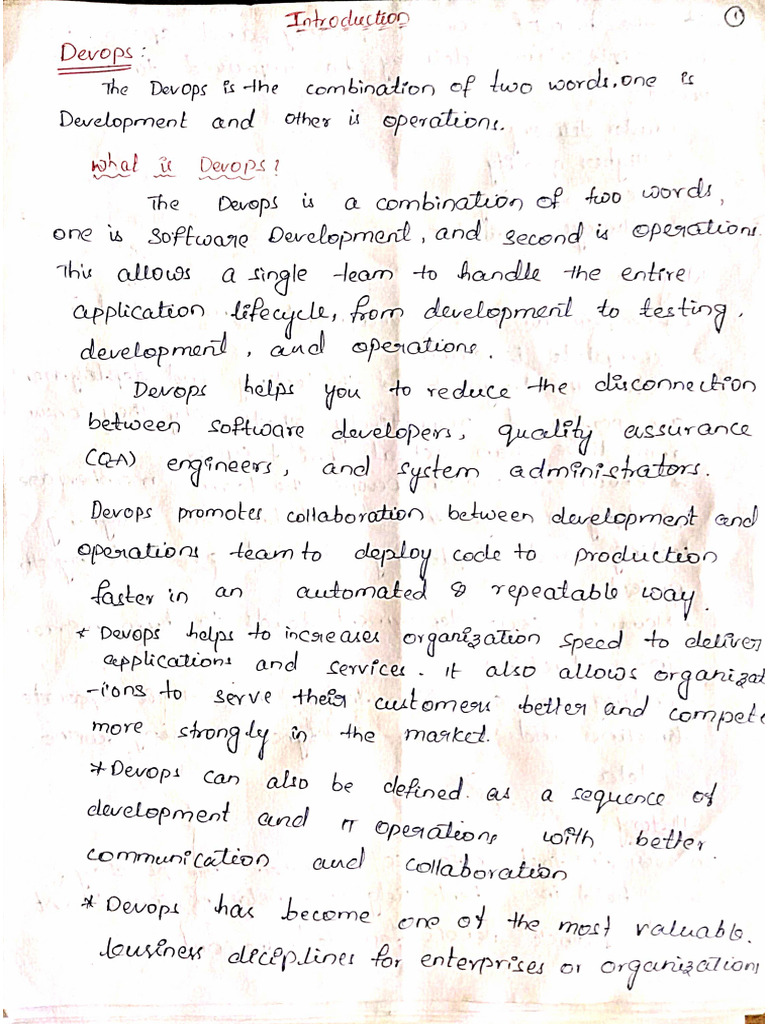 Introduction
1
Devops:
The Devops is the combination of two words, one is
Development and other is operations.
What is Devops?
The Devops is a combination of two words,
one is software Development, and second is operations.
This allows a single team to handle the entire
application lifecycle, from development to testing,
development, and operations.
Devops helps you to reduce the disconnection
between software developers, quality assurance
(QA) engineers, and system administrators.
Devops promotes collaboration between development and
operations team to deploy code to production
faster in an automated & repeatable way.
* Devops helps to increases organization speed to deliver
applications and services. it also allows organizat
-ions to serve their customers better and compete
more strongly in the market.
* Devops can also be defined as a sequence of
development and IT operations with better
communication and collaboration
* Devops has become one of the most valuable
business deciplines for enterprises or organizations